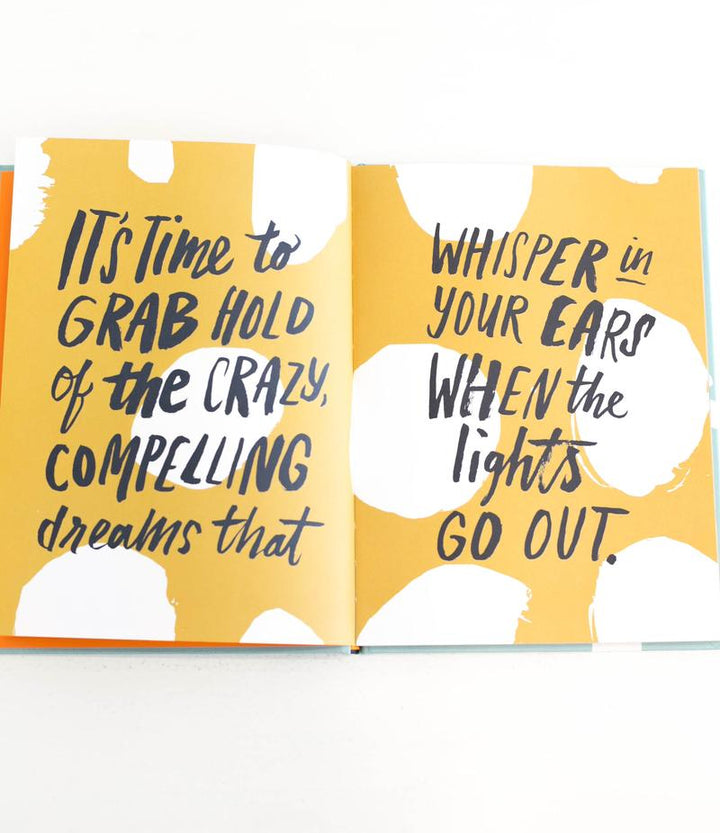 IT'S Time to
GRAB HOLD
of the CRAZY,
COMPELLING
dreams that
WHISPER in
YOUR EARS
WHEN the
lights
GO OUT.